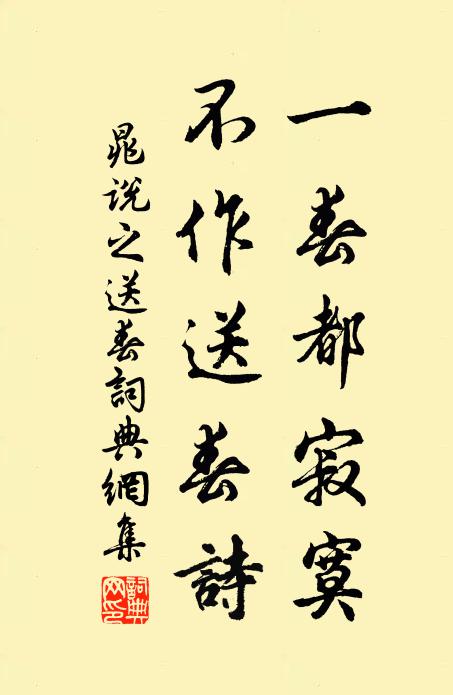 一春都寂寞
不作送春詩
晁说之送春詞典網集
詞典网印